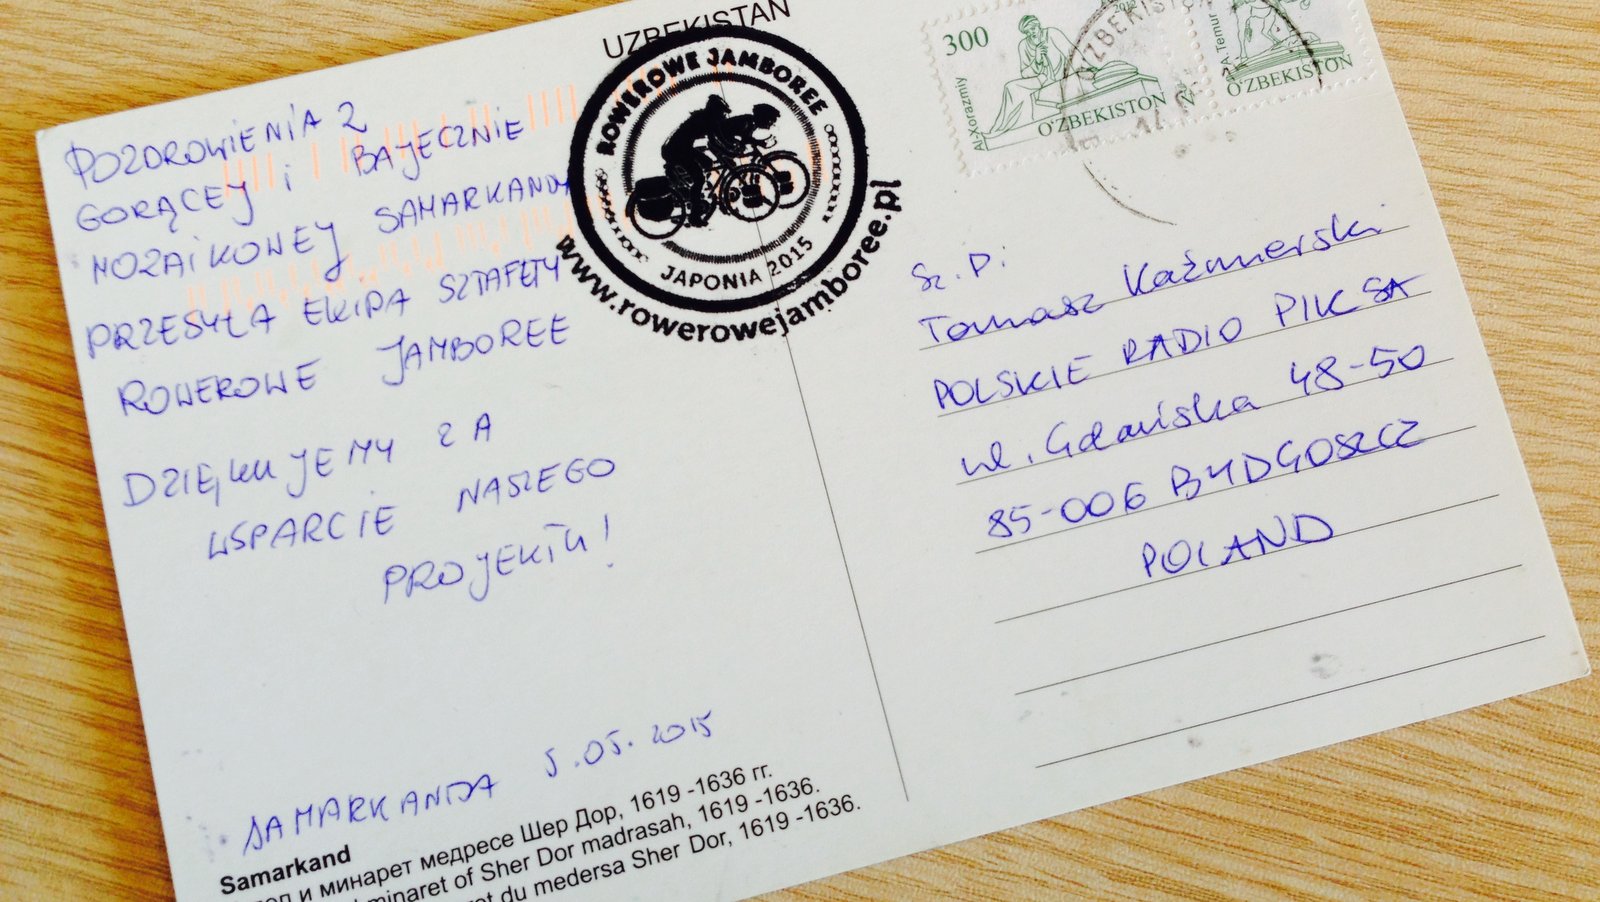 UZBEKISTAN
ROWEROWE JAMBOREE
JAPONIA 2015
www.rowerowejamboree.pl
300
Alxorazmiy
O'ZBEKISTON
A.Temur
O'ZBEKISTON
POZDROWIENIA Z
GORĄCEJ i BAJECZNIE
MOZAIKOWEJ SAMARKANDY
PRZESYŁA EKIPA SZTAFETY
ROWEROWE JAMBOREE
DZIĘKUJEMY ZA
WSPARCIE NASZEGO
PROJEKTU!
SAMARKANDA 5.05.2015
Sz.P.
Tomasz Kaźmierski
POLSKIE RADIO PIK SA
ul. Gdańska 48-50
85-006 BYDGOSZCZ
POLAND
Samarkand
и минарет медресе Шер Дор, 1619 -1636 гг.
minaret of Sher Dor madrasah, 1619 -1636.
du medersa Sher Dor, 1619 -1636.